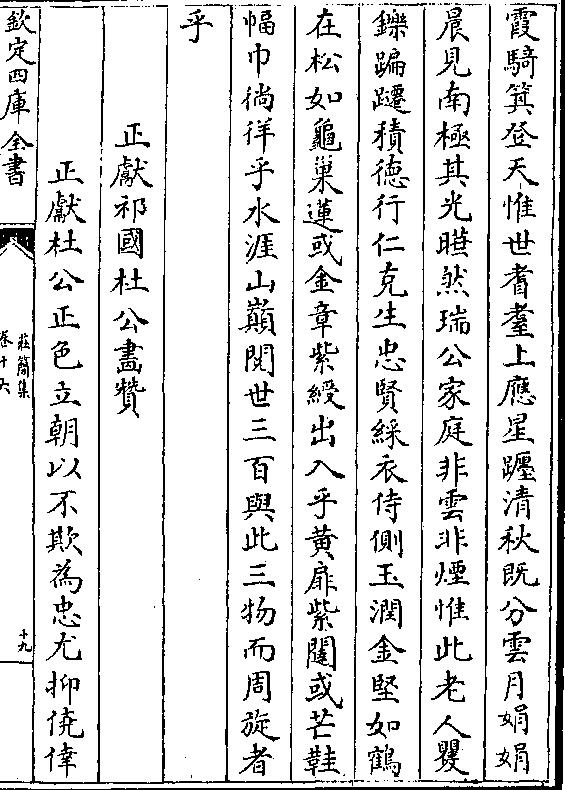 霞騎箕登天惟世耆耋上應星躔清秋既分雲月娟娟
晨見南極其光曄然瑞公家庭非雲非煙惟此老人矍
鑠蹁躚積德行仁克生忠賢綵衣侍側玉潤金堅如鶴
在松如龜巢蓮或金章紫綬出入乎黃扉紫闥或芒鞋
幅巾徜徉乎水涯山巔閱世三百與此三物而周旋者
乎
正獻祁國杜公畫贊
正獻杜公正色立朝以不欺為忠尤抑僥倖
欽定四庫全書
莊簡集
卷十六
十九